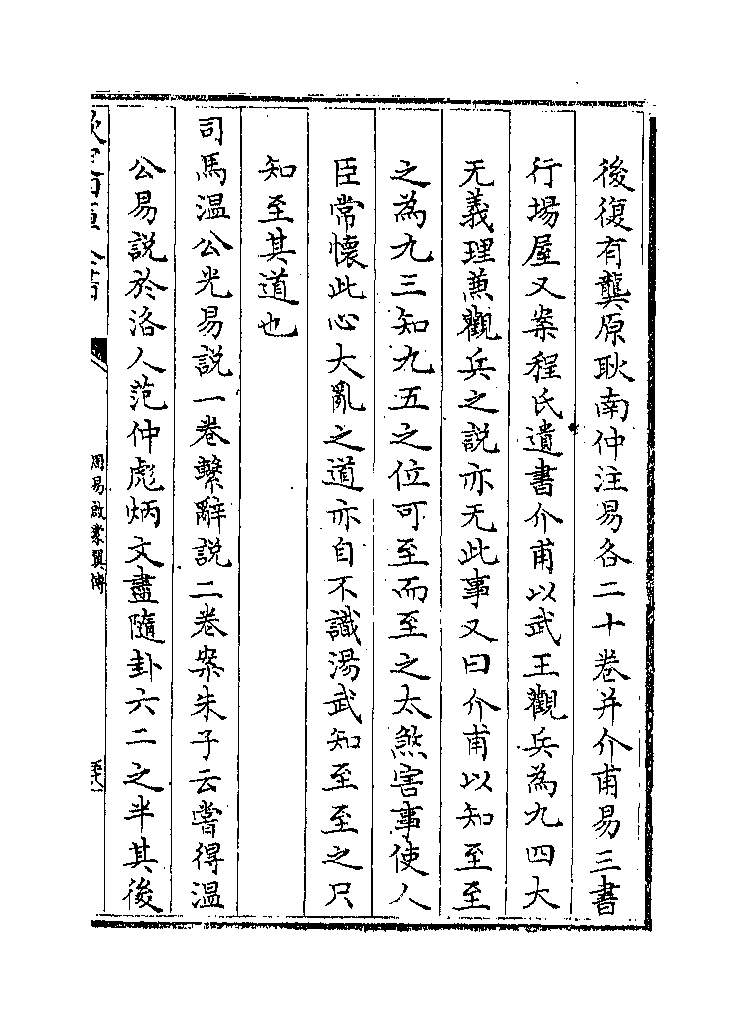 後復有龔原耿南仲注易各二十卷并介甫易三書
行場屋又案程氏遺書介甫以武王觀兵為九四大
无義理兼觀兵之説亦无此事又曰介甫以知至至
之為九三知九五之位可至而至之太煞害事使人
臣常懷此心大亂之道亦自不識湯武知至至之只
知至其道也
司馬温公光易説一卷繫辭説二卷案朱子云嘗得温
公易説於洛人范仲彪炳文盡隨卦六二之半其後
周易啟蒙翼傳